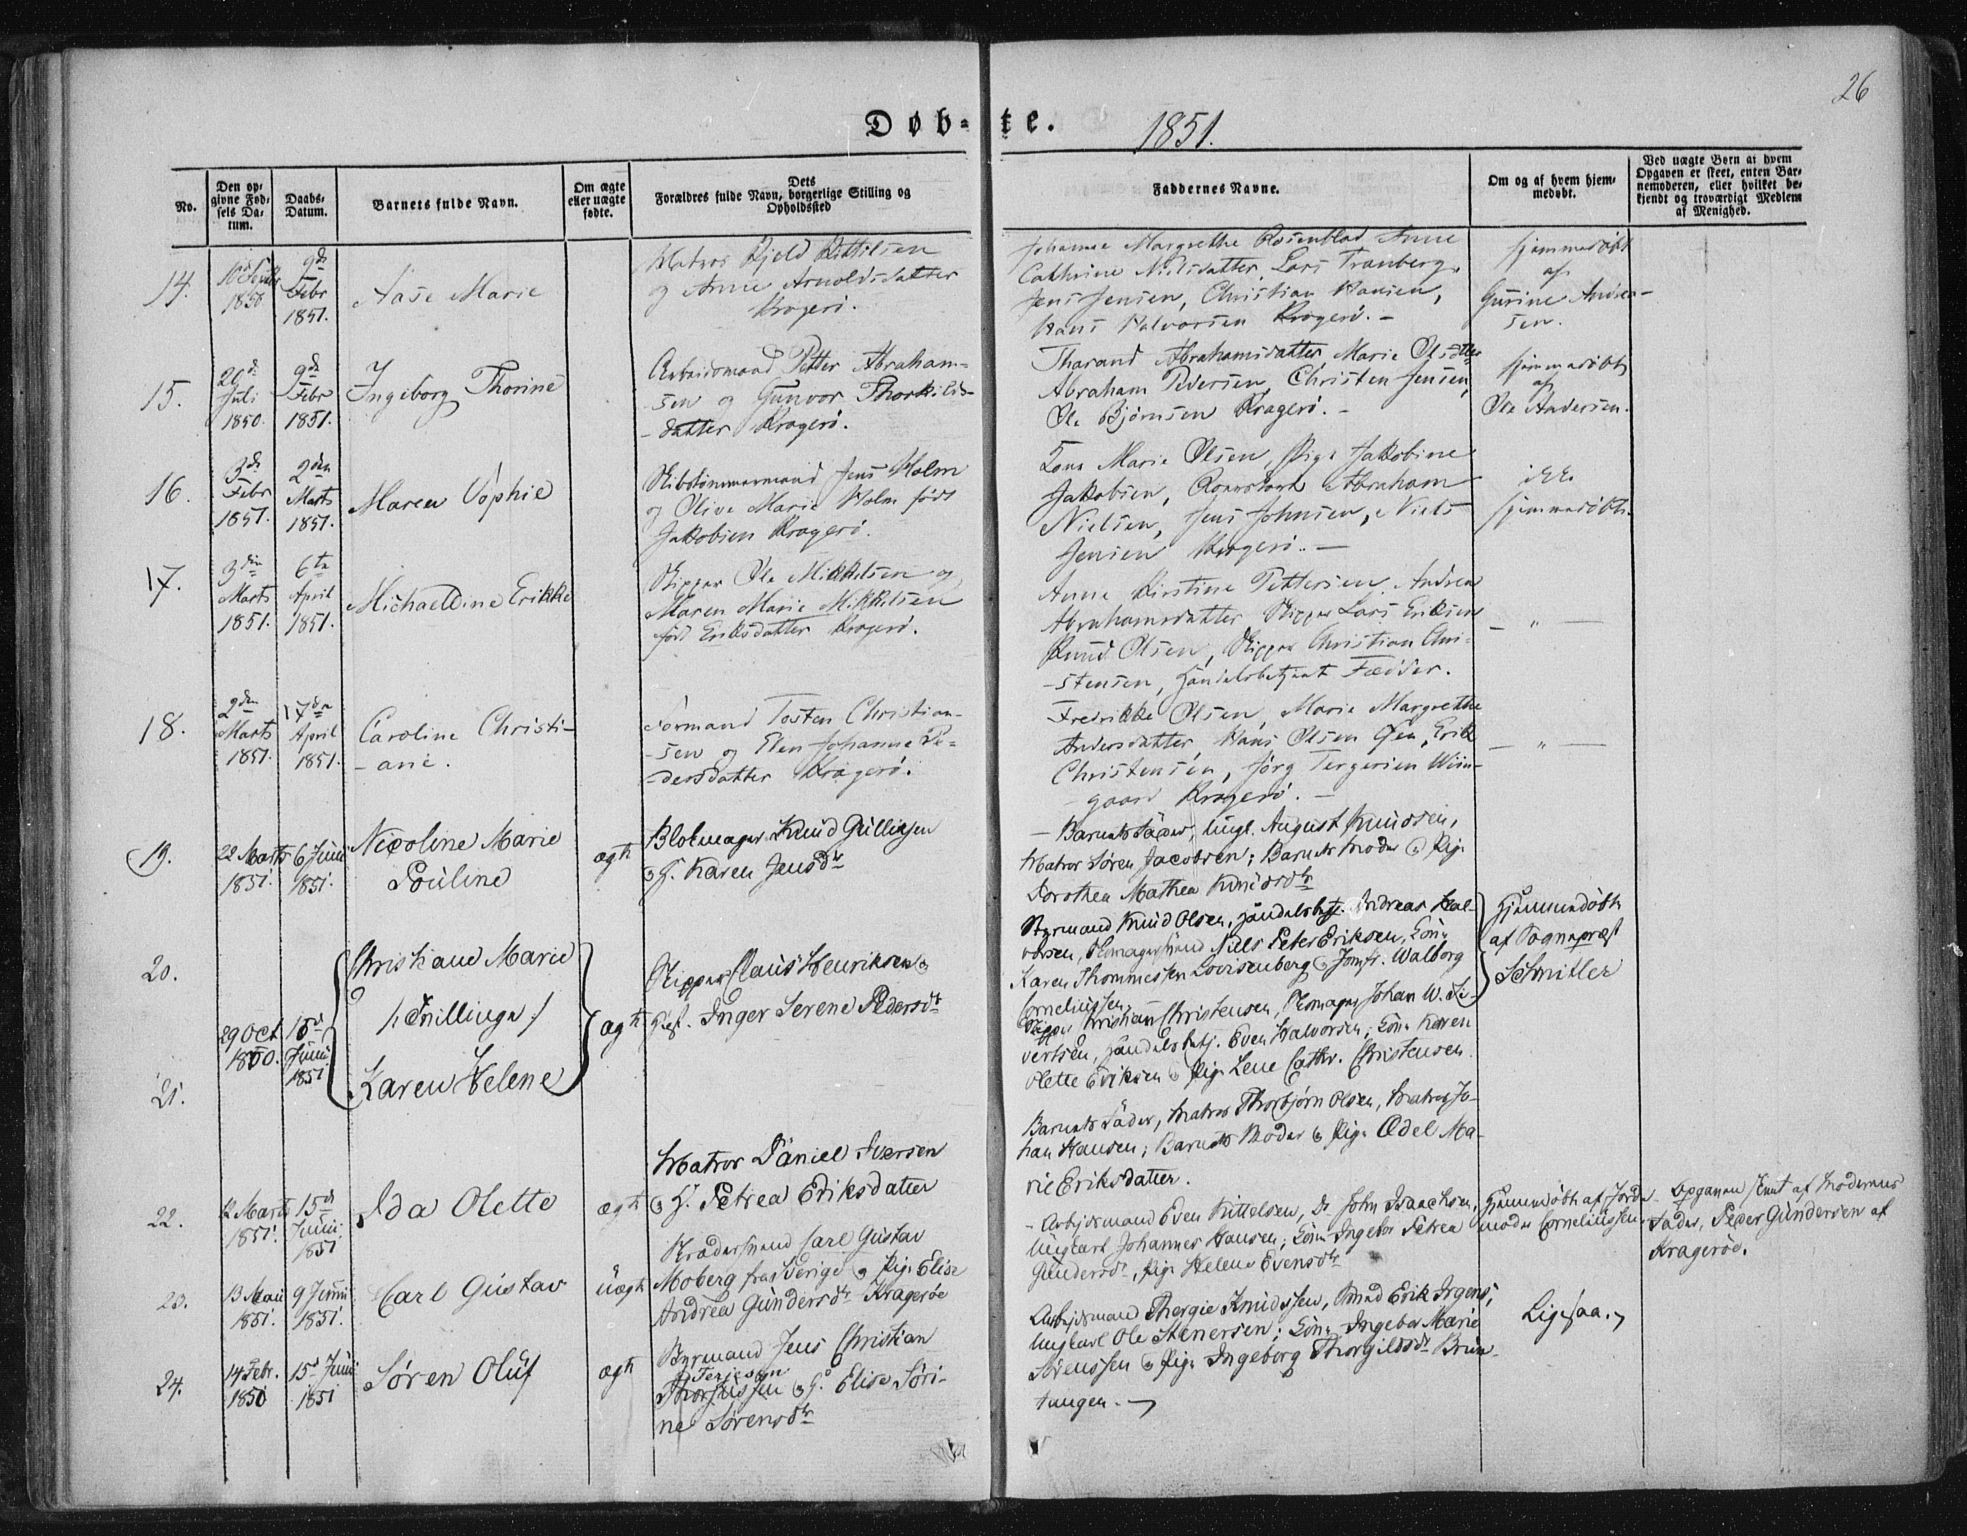 26
Døb-te.
1851.
No.
Den op-
givne Fød-
sels Da-
tum.
Daabs-
Datum.
Barnets fulde Navn.
Om ægte
eller uægte
fødte.
Dets
Forældres fulde Navn, borgerlige Stilling og
Opholdssted
Faddernes Navne.
Om og af hvem hjem-
medøbt.
Ved uægte Børn af hvem
Opgaven er skeet, enten Bar-
nemoderen, eller hvilket be-
kjendt og troværdigt Medlem
af Menighed.
14.
1850
9de
Febr
1851.
Aase Marie
Matros Kjeld Kittilsen
og Anne Arnoldsdatter
Kragerö.
Johanne Margrethe Rosenblad Anne
Cathrine Nielsdatter, Lars Tranberg,
Jens Jensen, Christian Hansen,
Hans Halvorsen Kragerö. -
hjemmedöbt
af
Gurine Andrea-
sen.
15.
20de
Juli
1850.
9de
Febr
1851.
Ingeborg Thorine
Arbeidsmand Petter Abraham-
sen og Gunvor Thorkilds-
-datter Kragerö.
Tharand Abrahamsdatter Marie Olsdtter
Abraham Pedersen, Christen Jensen,
Ole Bjørnsen Kragerö. -
hjemmedöbt
af
Ole Andersen.
16.
3de
Febr
1851.
2den
Marts
1851.
Maren Sophie
Skibstömmermand Jens Holm
og Olive Marie Holm født
Jakobsen Kragerö.
Kone Marie Olsen, Pige Jakobine
Jakobsen, Abraham
Nielsen, Jens Johnsen, Niels
Jensen Kragerö. -
ikke
hjemmedöbt.
17.
3die
Marts
1851.
6te
April
1851.
Michaeldine Erikke
Skipper Ole Mikkelsen og
Maren Marie Mikkelsen
föd Eriksdatter Kragerö.
Anne Kirstine Pettersen. Andrea
Abrahamsdatter Skipper Lars Eriksen
Knud Olsen, Skipper Christian Chri-
-stensen, Handelsbetjent Fædder.
- " -
18.
2den
Marts
1851.
17de
April
1851.
Caroline Christi-
-ane.
Sörmand Tosten Christian-
-sen og Elen Johanne Pe-
-dersdatter Kragerö.
Fredrikke Olsen, Marie Margrethe
Andersdatter Hans Olsen Øen, Erik
Christensen, Jörg Tergersen Wiin-
gaard Kragerö. -
- " -
19.
22 Marts
1851.
6 Juni
1851.
Nicoline Marie
Pouline
ægte
Blokmager Knud Gulliksen
& H. Karen Jensdtr
- Barnets Fader, Ungk. August Knudsen,
Matros Søren Jacobsen; Barnets Moder & Pige
Dorothea Mathea Knudsdtr
20.
21.
29 Oct
1850.
15de
Juni
1851
Christiane Marie
/: Tvillinge :/
Karen Helene
ægte
Skipper Claus Henriksen &
Inger Serene Pedersdtr
Styrmand Knud Olsen, Handelsbetj. Andreas Hal-
vorsen, Niels Peter Eriksen, Kone
Karen Thommesen Lovisenberg & Jomfr. Walborg
Corneliussen,
Skipper Christian Christensen, Johan W. Si-
vertsen, Handelsbetj. Even Halvorsen; Kone Karen
Olette Eriksen & Pige Lene Cathr. Christensen
Hjemmedöbt
af Sognepræst
Schnitler
22.
12 Marts
1851.
15de
Juni
1851
Ida Olette
ægte
Matros Daniel Iversen
& H. Petrea Eriksdatter
Barnets Fader, Matros Thorbjørn Olsen, Matros Jo-
han Hansen; Barnets Moder & Pige Edel Ma-
rie Eriksdatter.
23.
13 Mai
1851.
9 Juni
1851.
Carl Gustav
uægte
Carl Gustav
Moberg fra Sverige & Pige Elise
Andrea Gundersdtr Kragerøe
- Arbeidsmand Even Kittelsen, Do John Isaachsen,
Ungkarl Johannes Hansen; Kone Ingebor Petrea
Gundersdtr, Pige Helene Evensdtr
Hjemmedöbt af Jorde-
moder Corneliussen.
Opgaven skeet af Moderens
Fader, Peder Gundersen af
Kragerøe.
24.
14 Febr.
1850
15de Juni
1851
Søren Oluf
ægte
Byemand Jens Christian
Terjesen
& H. Elise Søri-
ne Sørensdtr
Arbeidsmand Thergie Knudssen, Smed Erik Irgens,
Ungkarl Ole Stenersen; Kone Ingebor Marie
Sørenssen & Pige Ingeborg Thorgilsdtr Brun-
tangen.
Ligesaa.